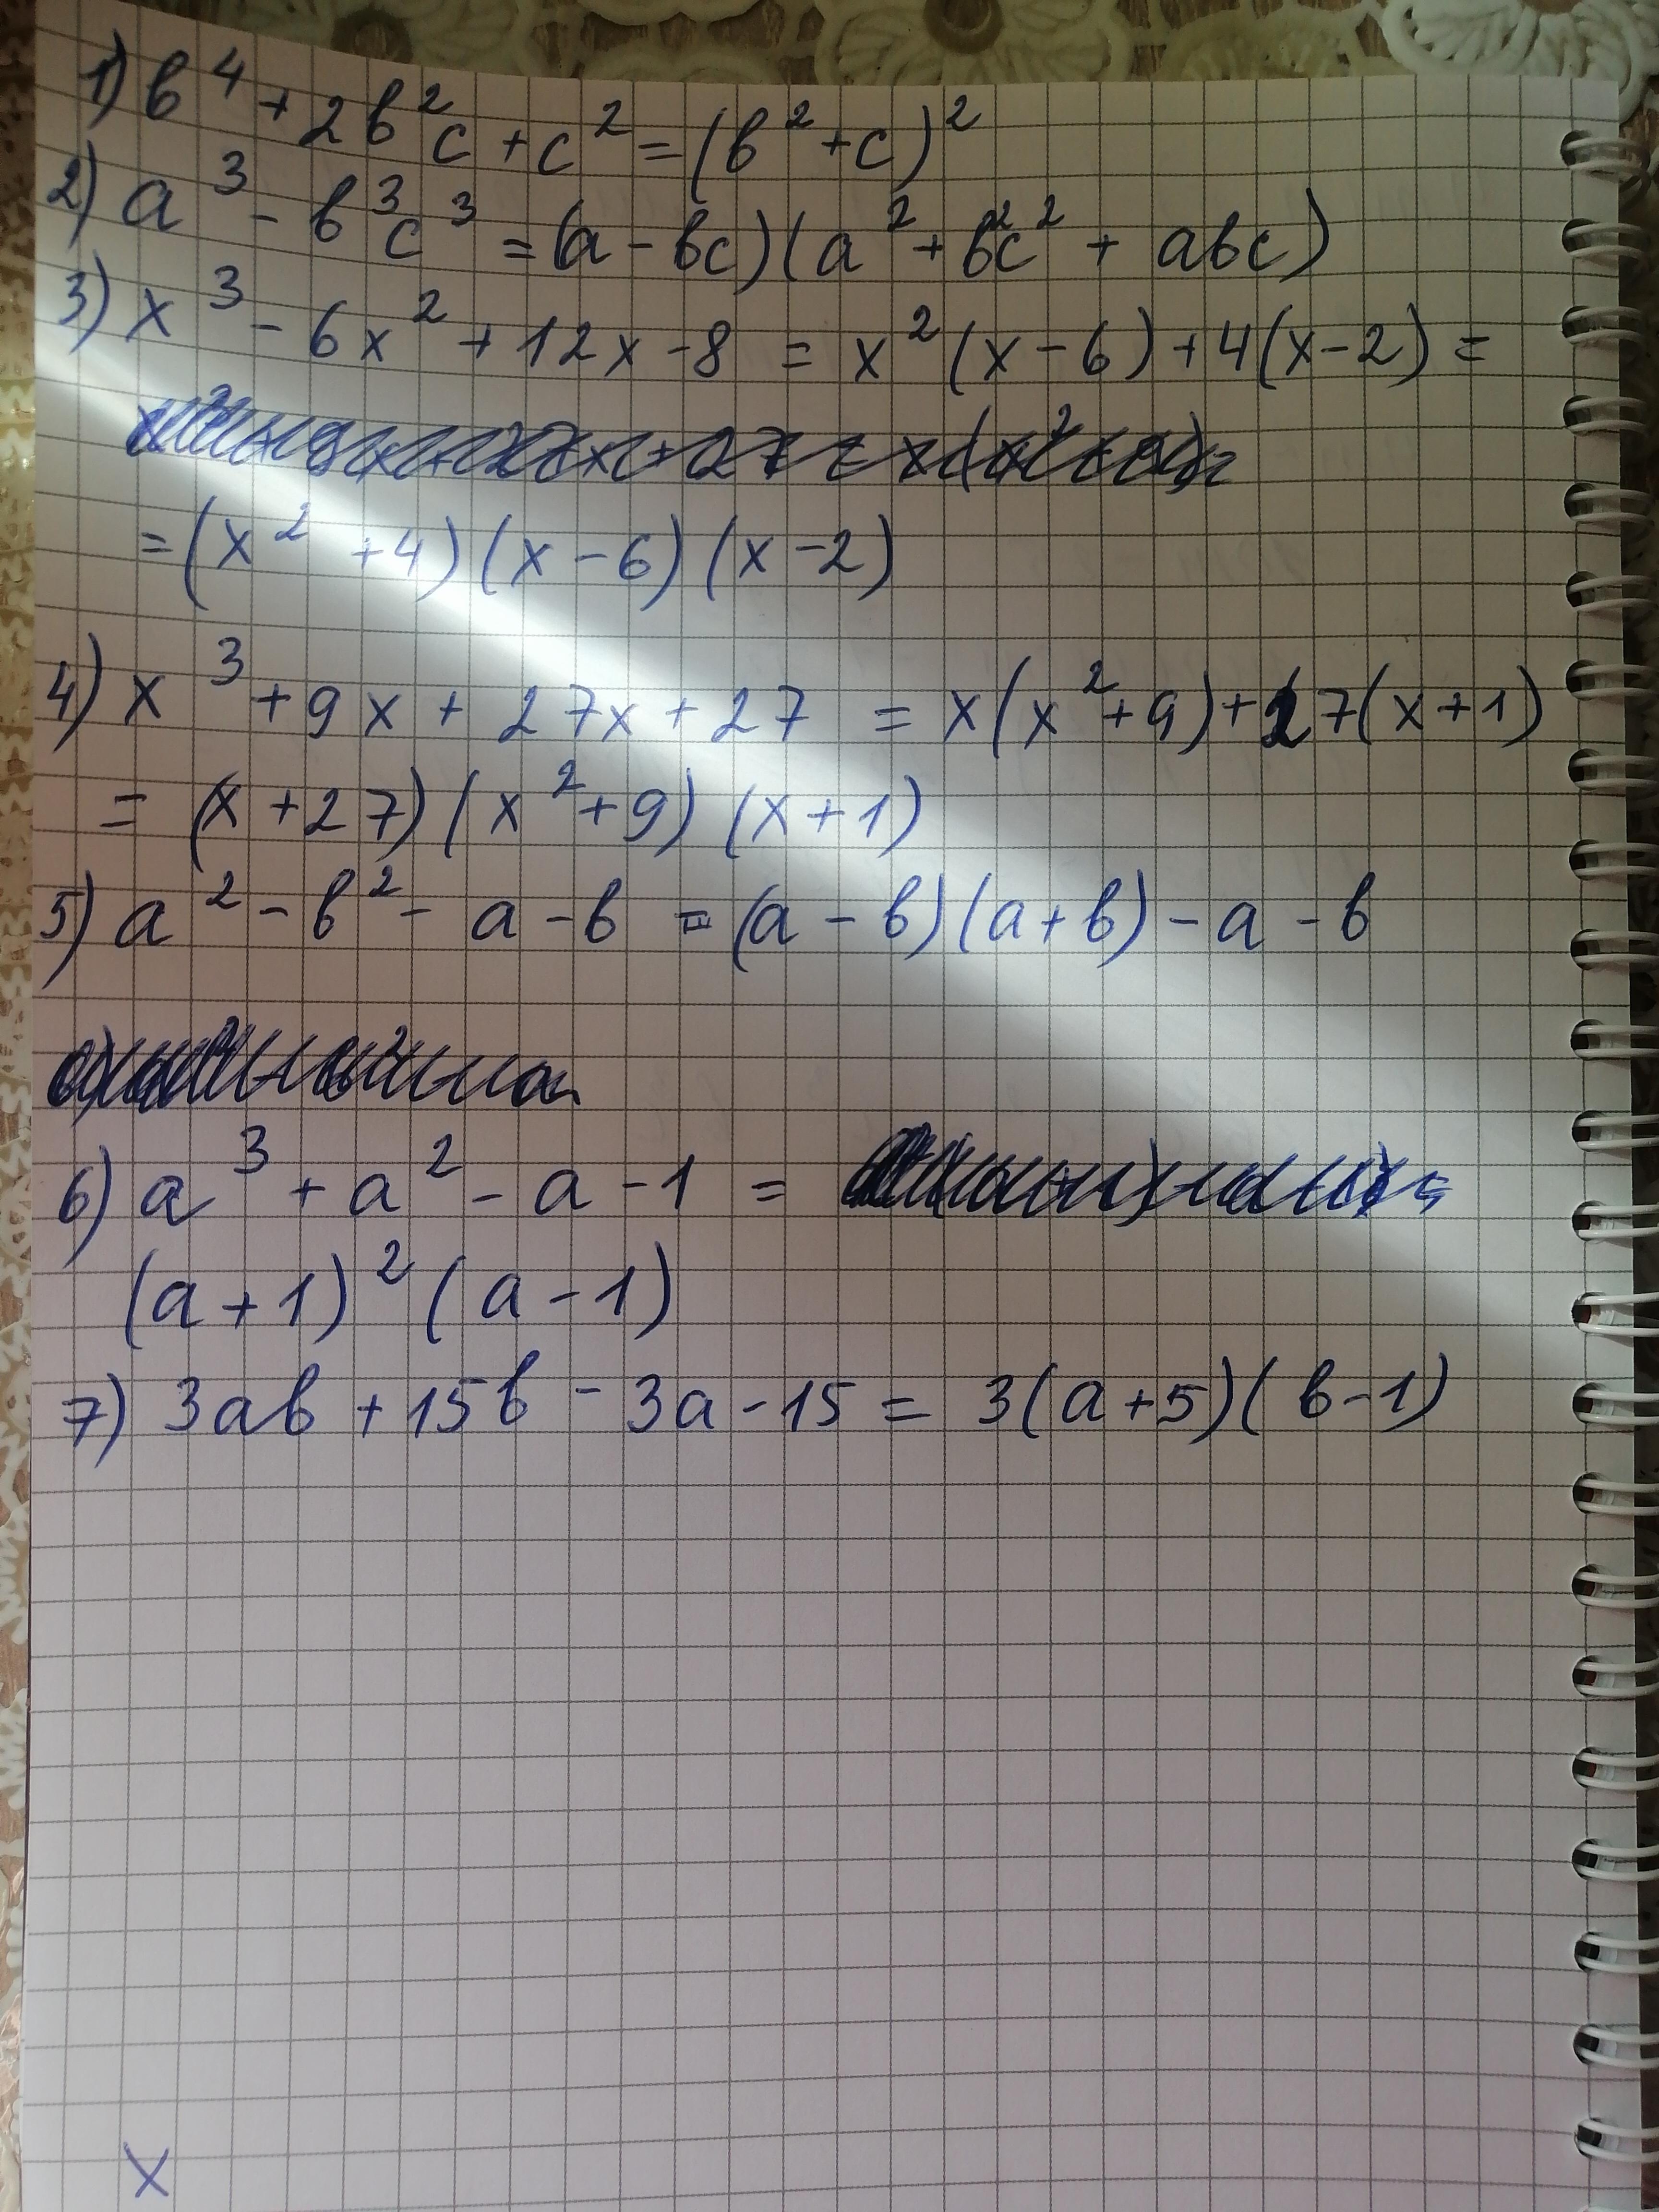 1) b⁴ + 2b²c + c² = (b² + c)²
2) a³ - b³c³ = (a - bc)(a² + b²c² + abc)
3) x³ - 6x² + 12x - 8 = x²(x - 6) + 4(x - 2) =
= (x² + 4)(x - 6)(x - 2)
4) x³ + 9x + 27x + 27 = x(x² + 9) + 27(x + 1)
= (x + 27)(x² + 9)(x + 1)
5) a² - b² - a - b = (a - b)(a + b) - a - b
6) a³ + a² - a - 1 =
(a + 1)²(a - 1)
7) 3ab + 15b - 3a - 15 = 3(a + 5)(b - 1)
x